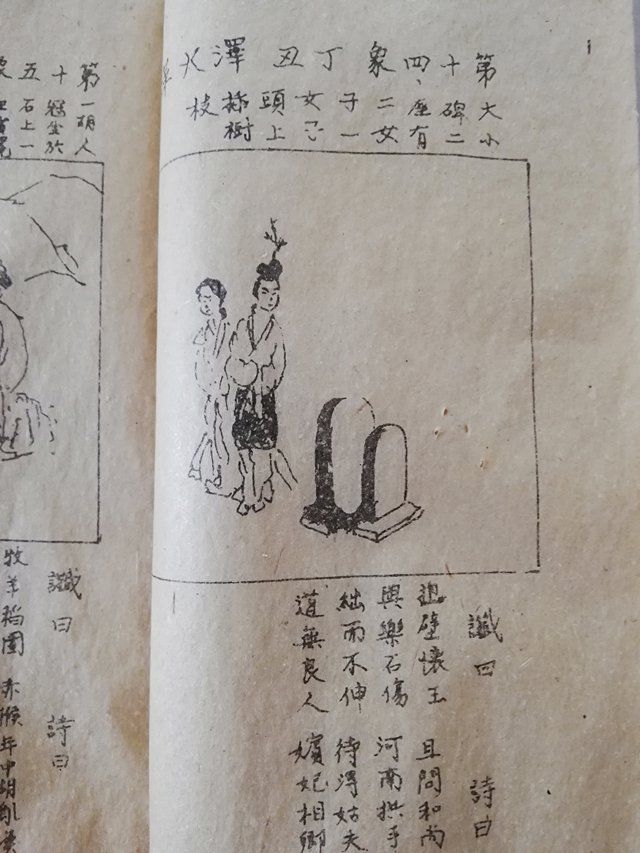 第十四象丁丑
澤火革
大小
碑二
座有
二女
子一
女子
頭上
插樹
枝
讖曰
壁懷玉
與樂石傷
絀而不伸
道無良人
詩曰
且問和尚
河南拱手
待得姑夫
嬪妃相卿
第十五
一胡人
冠坐於
石上一
讖曰
牧羊稻園
詩曰
赤猴年中胡亂